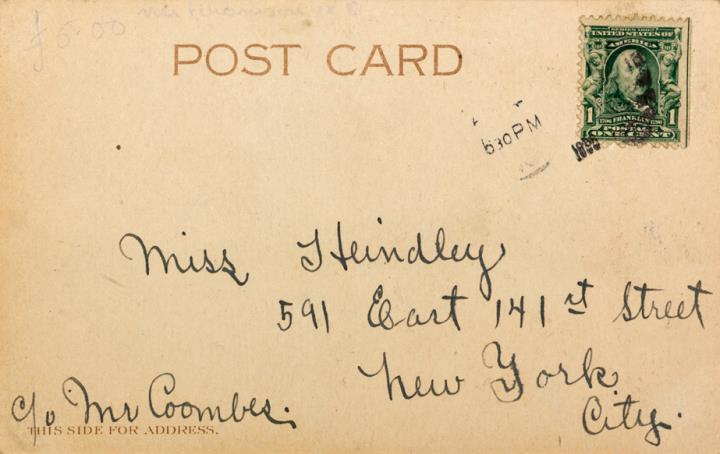 £5.00
POST CARD
SERIES 1902
UNITED STATES OF
AMERICA
1 1706 FRANKLIN 1790 1
POSTAGE
ONE CENT
630 PM
Miss Heindley
591 East 141st Street
New York
City.
c/o Mr Coombes.
THIS SIDE FOR ADDRESS.